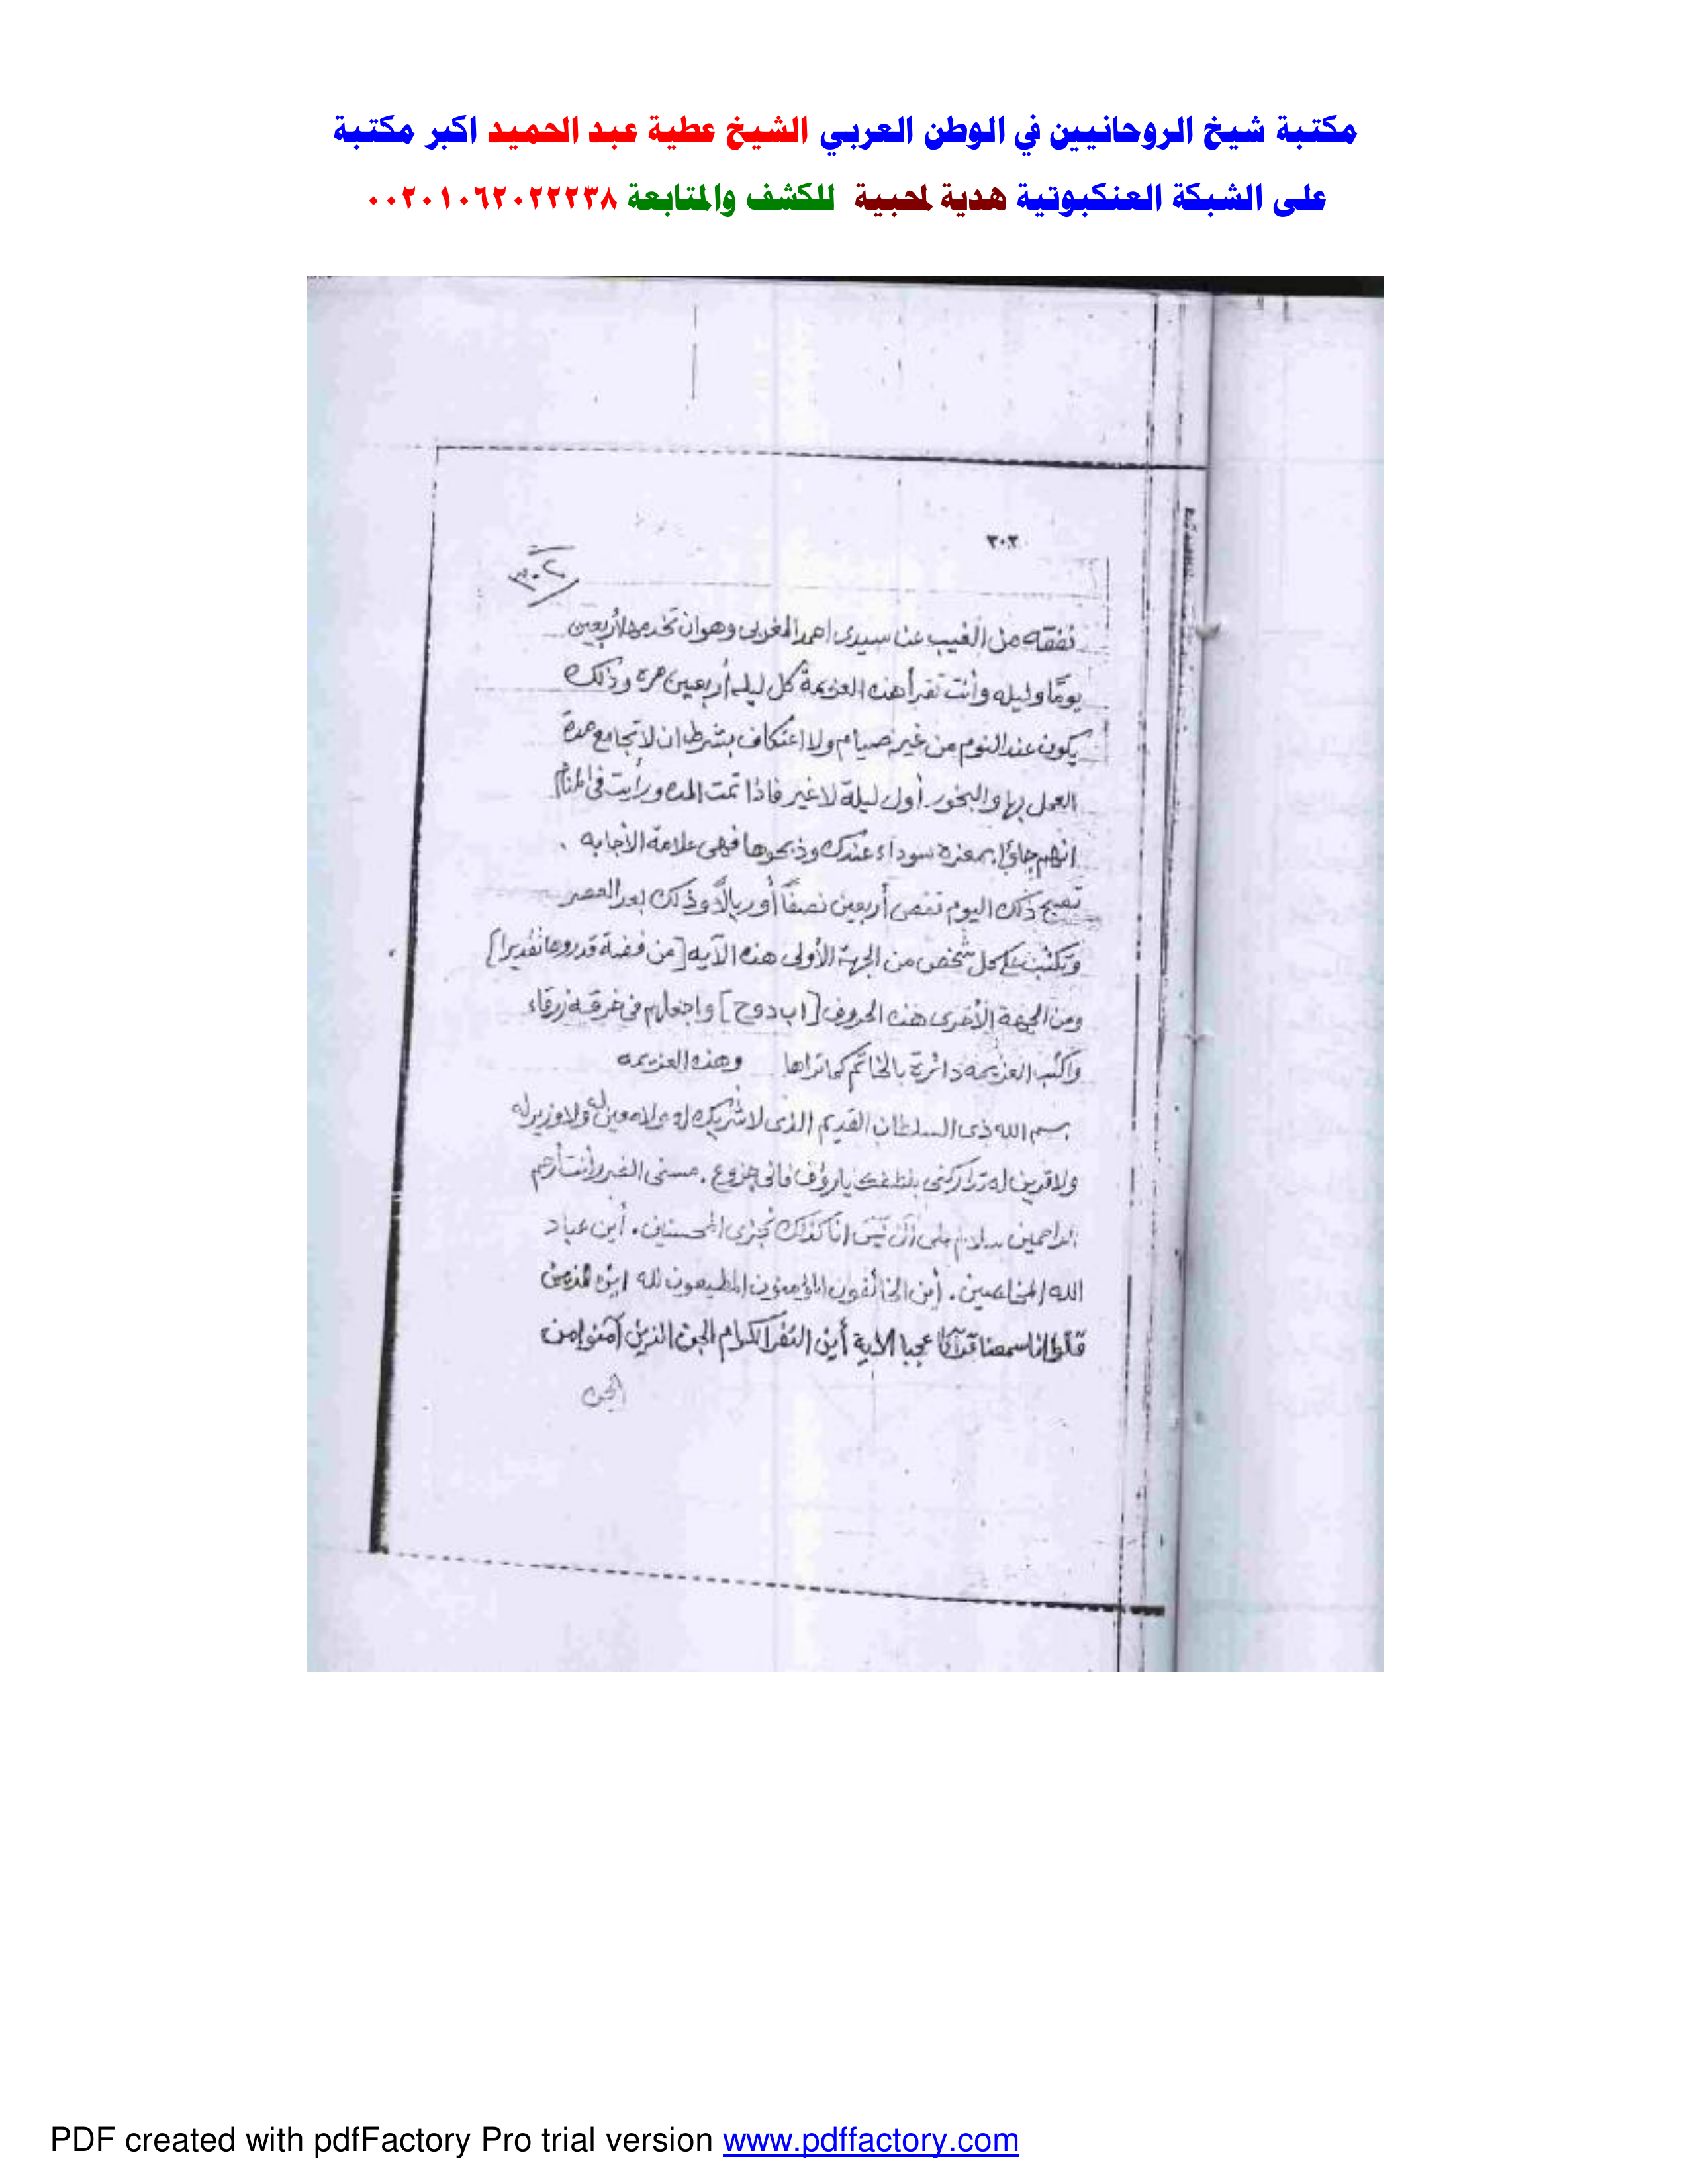 مكتبة شيخ الروحانيين في الوطن العربي الشيخ عطية عبد الحميد اكبر مكتبة
على الشبكة العنكبوتية هدية لمحبية للكشف والمتابعة ٠٠٢٠١٠٦٢٠٢٢٢٣٨
٣٠٢
نفقه من الغيب عن سيدى احمد المغربى وهو ان تخدمها لأربعين
يومًا وليله وأنت تقرأ هذه العزيمة كل ليله أربعين مره وذلك
يكون عند النوم من غير صيام ولا اعتكاف بشرط ان لا تجامع مدة
العمل بها والبخور أول ليلة لا غير فاذا تمت المده ورأيت فى المنام
انهم جاؤا بمعزه سوداء عندك وذبحوها فهى علامة الأجابه .
تصبح ذلك اليوم تقص أربعين نصفًا أو ريالًا وذلك بعد العصر
وتكتب على كل شخص من الجهة الأولى هذه الآيه [من فضة قدروها تقديرا]
ومن الجهة الأخرى هذه الحروف [اب دوح] واجعلهم فى خرقه زرقاء
واكتب العزيمه دائرة بالخاتم كما تراها وهذه العزيمه
بسم الله ذى السلطان القديم الذى لا شريك له ولا معين له ولا وزير له
ولا قرين له تداركنى بلطفك يا رؤف فانى جزوع . مسنى الضر وأنت أرحم
الراحمين سلام على آل يس انا كذلك نجزى المحسنين . أين عباد
الله المخلصين . أين الخائفون المؤمنون المطيعون لله اين الذين
قالوا انا سمعنا قرآنا عجبا الاية أين النفر الكرام الجن الذين آمنوا من
الجن
PDF created with pdfFactory Pro trial version www.pdffactory.com